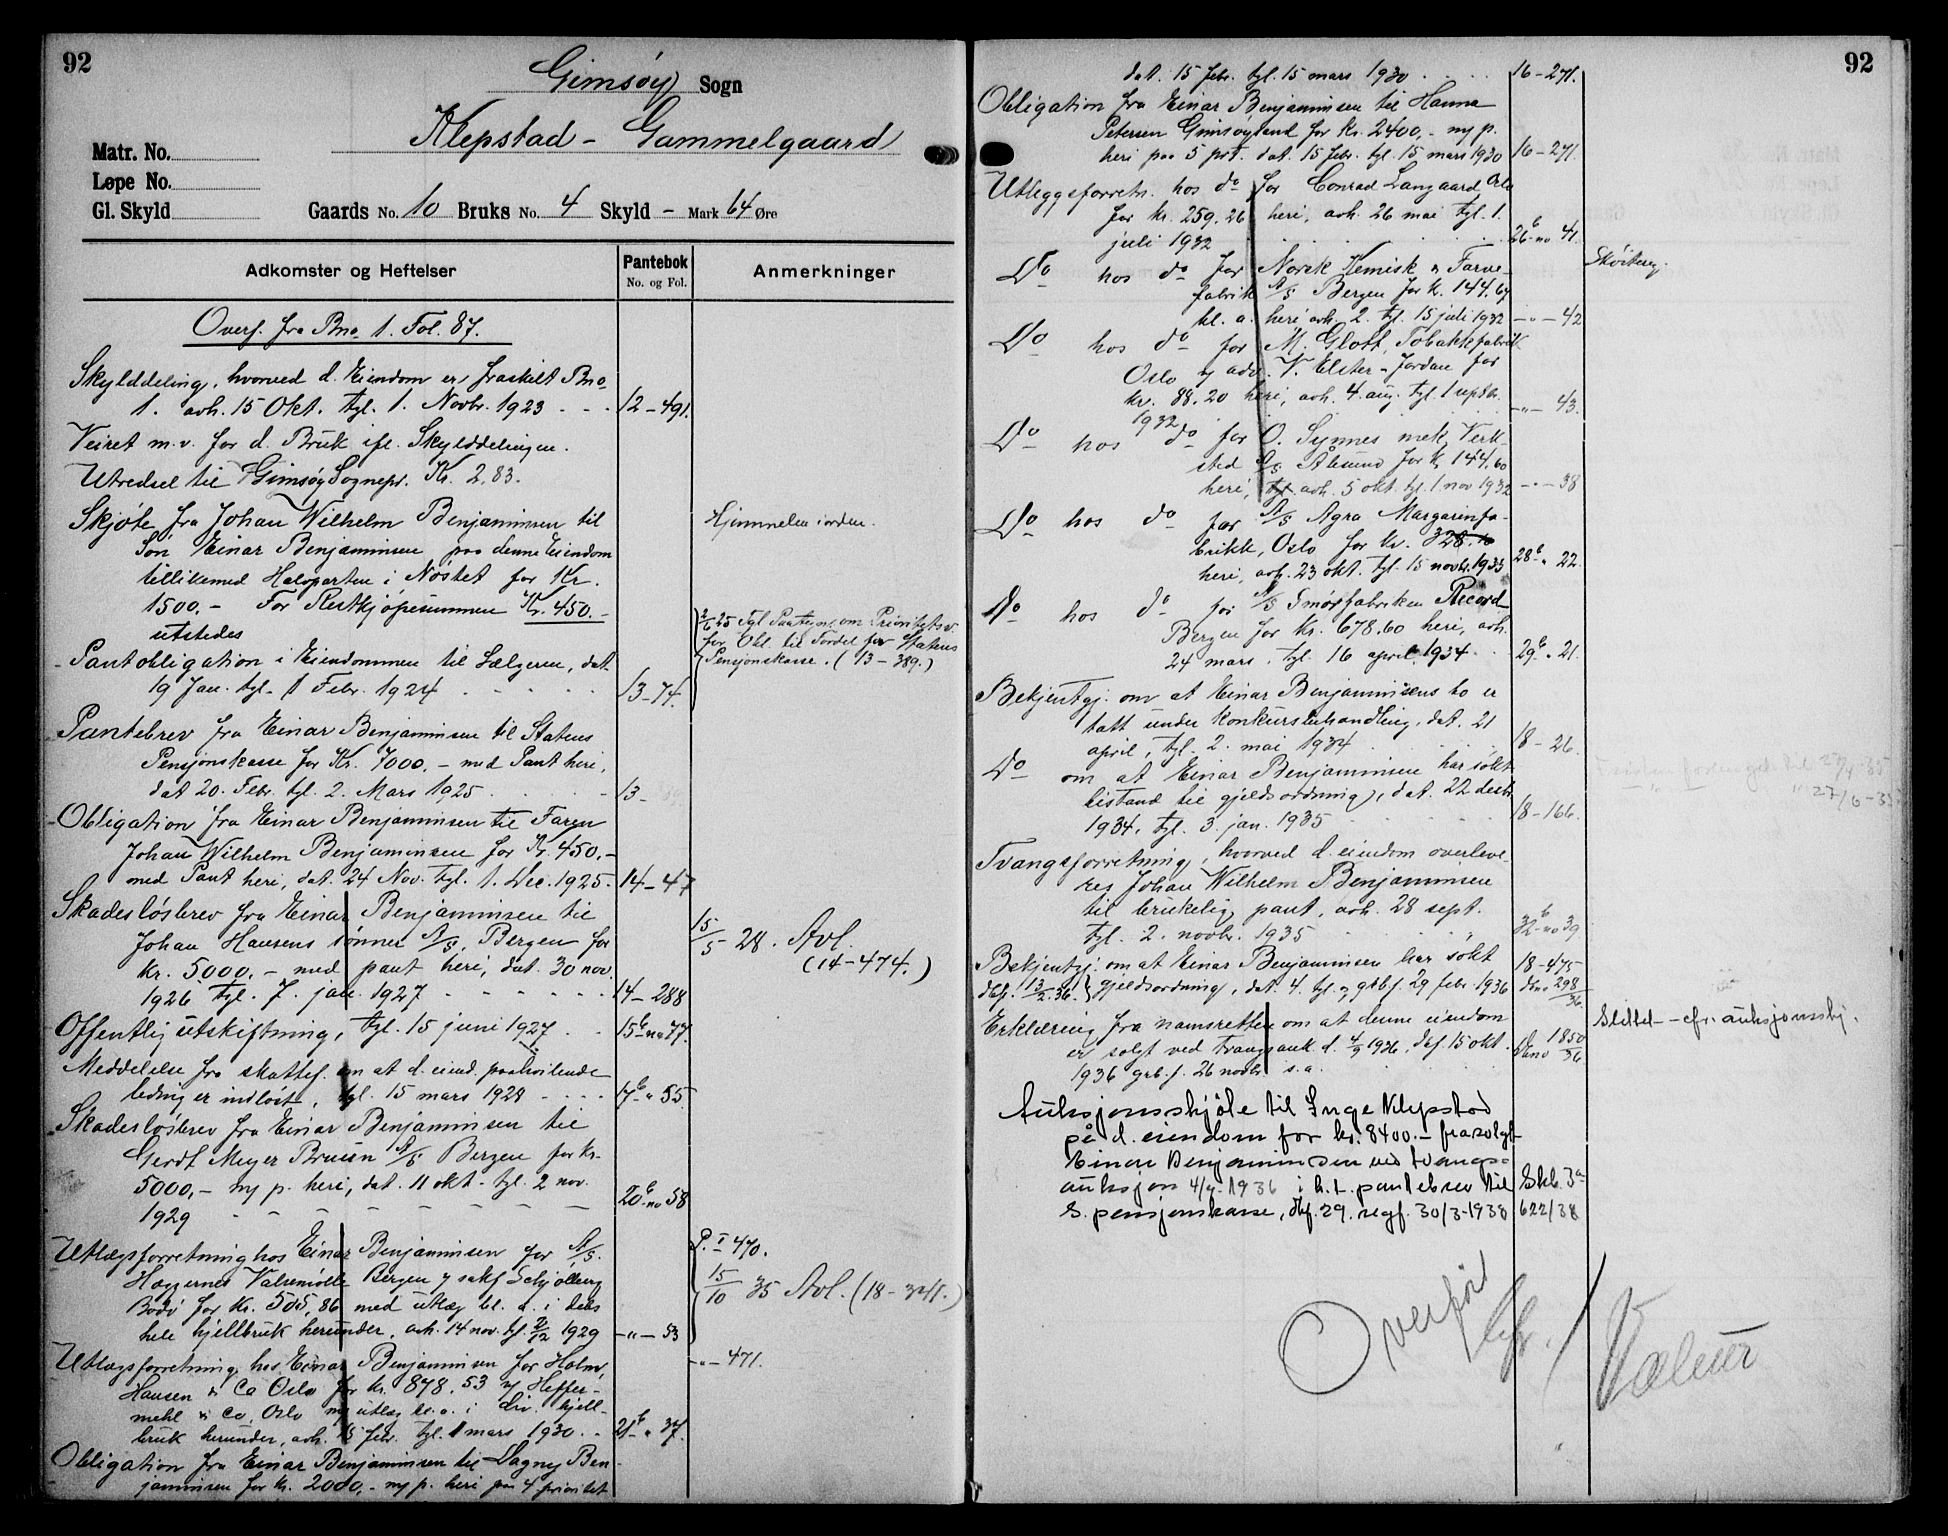 92
Gimsøy Sogn
Klepstad - Gammelgaard
Matr. No.
Løpe No.
Gl. Skyld
Gaards No. 10 Bruks No. 4 Skyld - Mark 64 Øre
Adkomster og Heftelser
Pantebok
No. og Fol.
Anmerkninger
Overf. fra Bno. 1. Fol. 87.
Skylddeling, hvorved d. Eiendom er fraskilt Bno
1. avh. 15 Okt. tgl. 1. Novbr. 1923 - - - 12 - 491.
Veiret m.v. for d. Bruk ifl. Skylddelingen.
Utredsel til Gimsøy Sognepr. Kr. 2,83.
Skjøte fra Johan Wilhelm Benjaminsen til Hjemmelen i orden.
Søn Einar Benjaminsen, paa denne Eiendom
tillikemed Halvparten i Nøstet for Kr.
1500.- For Restkjøpesummen Kr. 450.-
utstedes
2/6 25 Tgl Paategn. om Prioritetsv.
for Obl. til Fordel for Statens
Pensjonskasse. (13 - 389.)
- Pantobligation i Eiendommen til Sælgeren, dat
19 Jan. tgl. 1 Febr. 1924 - - - - 13 - 74.
Pantebrev fra Einar Benjaminsen til Statens
Pensjonskasse for Kr. 7000.- med Pant heri,
dat 20. Febr. tgl. 2. Mars 1925 - 13 -
- Obligation fra Einar Benjaminsen til Faren
Johan Wilhelm Benjaminsen for Kr. 450.-
med Pant heri, dat. 24 Nov. tgl. 1. Dec. 1925. 14 - 47
Skadesløsbrev fra Einar Benjaminsen til
Johan Hansens sønner A/S, Bergen for
kr. 5000.- med pant heri, dat. 30 nov.
1926 tgl. 7. jan. 1927 - - - - - 14 - 288
15/5 28. Avl.
(14 - 474.)
Offentlig utskiftning, tgl. 15 juni 1927 - - 15b no 77.
Meddelelse fra skattef. om at d. eiend. paahvilende
leding er indløst, tgl. 15 mars 1929 - - - - 17b " 55.
Skadesløsbrev fra Einar Benjaminsen til
Gerdt Meyer Bruun A/S Bergen for kr.
5000,- m/ p. heri, dat. 11 okt. tgl. 2 nov.
1929 - - - - - - - 20b no 58
Utlægsforretning hos Einar Benjaminsen for A/S.
Heggernes Valsemølle Bergen v/ sakf Schjølberg
Bodø for kr. 505,86 med utlæg bl. a. i dens
hele hjellbruk herunder, avh. 14 nov. tgl 2/12 1929 - " - 53
P. I 470.
15/10 35 Avl. (18 - 321.)
Utlægsforretning hos Einar Benjaminsen for Holm,
Hansen & Co Oslo for kr. 878,53 v/ Heffer-
mehl & Co, Oslo m/ utlæg bl. a. i div. hjell-
bruk herunder, avh. 15 febr. tgl. 1 mars 1930 - - 21b " 37.
- " - 471.
Obligation fra Einar Benjaminsen til Dagny Ben-
jaminsen for kr. 2000,- m/ p. heri paa 4 prioritet
92
dat. 15 febr. tgl. 15 mars 1930 . . . . 16 - 271.
Obligation fra Einar Benjaminsen til Hanna
Petersen Gimsøysand for kr. 2400,- m/ p.
heri paa 5 prt. dat. 15 febr. tgl. 15 mars 1930 16 - 271.
Utleggsforretn. hos do for Conrad Langaard Oslo
for kr. 259,26 heri, avh. 26 mai tgl. 1.
juli 1932 . . . . 26b no 41.
Do hos do for Norsk Kemisk & Farve-
fabrik A/S Bergen for k. 144,67
bl. a. heri avh. 2. tgl. 15 juli 1932 - " - 42
Do hos do for M. Glott, Tobakkfabrik
Oslo v/ adv. V. Elster-Jordan for
kr. 88.20 heri, avh. 4. aug. tgl. 1 septbr.
1932 - " - 43.
Do hos do for O. Synnes mek. Verk-
sted A/S Ålesund for k. 144,60
heri, avh. 5 okt. tgl. 1 nov 1932 - " - 38
Do hos do for A/S Agra Margarinfa-
brikk, Oslo for kr. 328.10
heri, avh. 23 okt. tgl. 15 novbr. 1933 28b " 22.
Do hos do for A/S Smørfabriken Record
Bergen for kr. 678,60 heri, avh.
24 mars. tgl. 16 april 1934 . . 29b " 21.
Bekjentgj. om at Einar Benjaminsens bo er
tatt under konkursbehandling, dat. 21
april, tgl. 2. mai 1934 . . . . 18 - 26.
Do om at Einar Benjaminsen har søkt
bistand til gjeldsordning, dat. 22 desbr.
1934, tgl. 3. jan. 1935 . . . . 18 - 166.
Fristen forlenget til 27/4-35
" " " 27/6-35
Tvangsforretning, hvorved d. eiendom overleve-
res Johan Wilhelm Benjaminsen
til brukelig pant, avh. 28 sept.
tgl. 2. novbr. 1935 32b no 39
Bekjentgj. om at Einar Benjaminsen har søkt 18 - 475
dbf. 13/2.36. } gjeldsordning, dat. 4. tgl. og grbf. 29 febr. 1936 dbno 298/36
Erklæring fra namsretten om at denne eiendom
er solgt ved tvangsauk. d. 4/9 1936, dbf. 15 okt. dbno 1850/36
1936 grb.f. 26 novbr. s.a.
Slettet - cfr. auksjonsskj.
Auksjonsskjøte til Inge Klepstad
på d. eiendom for kr. 8400.- frasolgt
Einar Benjaminsen ved tvangs-
auksjon 4/9-1936 i h.t. pantebrev til Skb. 3a
S. pensjonskasse, dbf. 29. regf. 30/3-1938 622/38
Overført